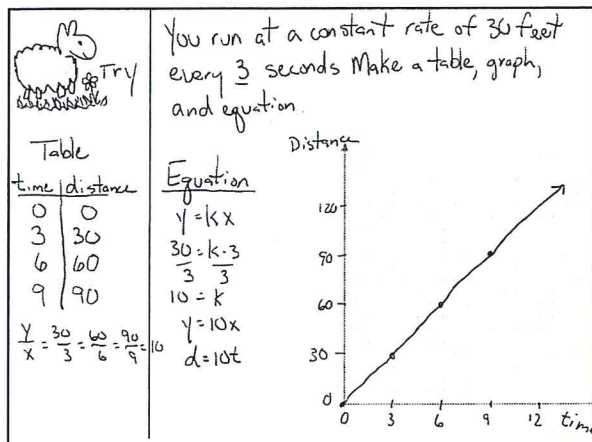 Try
You run at a constant rate of 30 feet
every 3 seconds Make a table, graph,
and equation.
Table
time | distance
0 | 0
3 | 30
6 | 60
9 | 90
Y/X = 30/3 = 60/6 = 90/9 = 10
Equation
y = kx
30/3 = k·3/3
10 = k
y = 10x
d = 10t
Distance
120
90
60
30
0
0 3 6 9 12 time